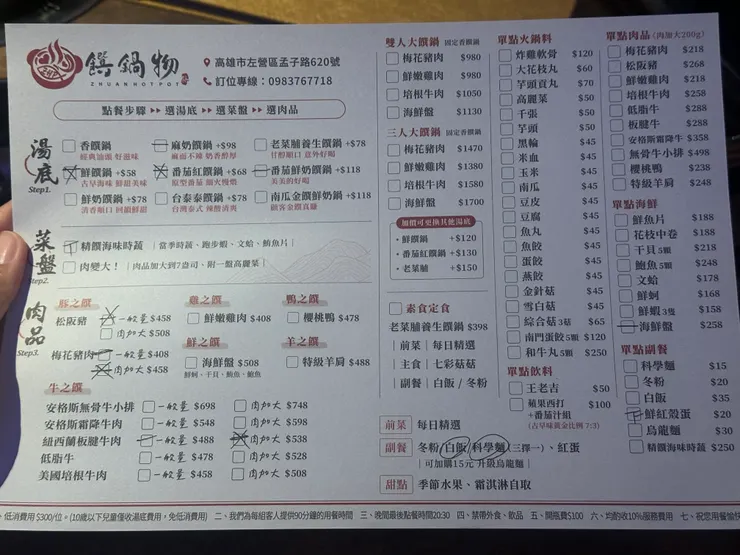 饌鍋物
ZHUAN HOT POT
高雄市左營區孟子路620號
訂位專線：0983767718
點餐步驟 ▸▸ 選湯底 ▸▸ 選菜盤 ▸▸ 選肉品
湯底
Step1.
香饌鍋
經典油頭 好滋味
麻奶饌鍋 +$98
麻而不辣 奶香醇厚
老菜脯養生饌鍋 +$78
甘醇順口 意外好喝
鮮饌鍋 +$58
古早海味 鮮甜美味
番茄饌鍋 +$68
原型番茄 細火慢燉
番茄鮮奶饌鍋 +$118
美美的好喝
鮮奶饌鍋 +$78
清香順口 回韻鮮甜
台泰泰饌鍋 +$78
台灣泰式 辣酸清爽
南瓜金饌鮮奶鍋 +$118
菜盤
Step2.
精饌海味時蔬｜當季時蔬、跑步蝦、文蛤、鮪魚片｜
肉變大！｜肉品加大到7盎司、附一盤高麗菜｜
肉品
Step3.
豚之饌
松阪豬
一般量 $458
肉加大 $508
梅花豬肉
一般量 $408
肉加大 $458
雞之饌
鮮嫩雞肉 $408
鴨之饌
櫻桃鴨 $478
鮮之饌
海鮮盤 $508
鮮蚵、干貝、鮪魚、鮑魚
羊之饌
特級羊肩 $488
牛之饌
安格斯無骨牛小排 一般量 $698 肉加大 $748
安格斯霜降牛肉 一般量 $548 肉加大 $598
紐西蘭板腱牛肉 一般量 $488 肉加大 $538
低脂牛 一般量 $478 肉加大 $528
美國培根牛肉 一般量 $458 肉加大 $508
雙人大饌鍋 固定香饌鍋
梅花豬肉 $980
鮮嫩雞肉 $980
培根牛肉 $1050
海鮮盤 $1130
三人大饌鍋 固定香饌鍋
梅花豬肉 $1470
鮮嫩雞肉 $1380
培根牛肉 $1580
海鮮盤 $1700
加價可更換其他湯底
• 鮮饌鍋 +$120
• 番茄紅饌鍋 +$130
• 老菜脯 +$150
素食定食
老菜脯養生饌鍋 $398
前菜｜每日精選
主食｜七彩菇菇
副餐｜白飯 / 冬粉
前菜 每日精選
副餐 冬粉/白飯/科學麵(三擇一)、紅蛋
｜可加購15元 升級烏龍麵｜
甜點 季節水果、霜淇淋自取
單點火鍋料
炸雞軟骨 $120
大花枝丸 $60
芋頭貢丸 $70
高麗菜 $50
千張 $50
芋頭 $50
黑輪 $45
米血 $45
玉米 $45
南瓜 $45
豆皮 $45
豆腐 $45
魚丸 $45
魚餃 $45
蛋餃 $45
燕餃 $45
金針菇 $45
雪白菇 $45
綜合菇3菇 $65
南門蛋餃5顆 $120
和牛丸5顆 $250
單點飲料
王老吉 $50
蘋果西打+番茄汁組 $100
(古早味黃金比例 7:3)
單點肉品 (肉加大200g)
梅花豬肉 $218
松阪豬 $268
鮮嫩雞肉 $218
培根牛肉 $258
低脂牛 $288
板腱牛 $288
安格斯霜降牛 $358
無骨牛小排 $498
櫻桃鴨 $238
特級羊肩 $248
單點海鮮
鮮魚片 $188
花枝中卷 $188
干貝5顆 $218
鮑魚5顆 $248
文蛤 $178
鮮蚵 $168
鮮蝦3隻 $158
海鮮盤 $258
單點副餐
科學麵 $15
冬粉 $20
白飯 $35
鮮紅殼蛋 $20
烏龍麵 $30
精饌海味時蔬 $250
低消費用$300/位。(10歲以下兒童僅收湯底費用，免低消費用) 二、我們為每組客人提供90分鐘的用餐時間 三、晚間最後點餐時間20:30 四、禁帶外食、飲品 五、開瓶費$100 六、均酌收10%服務費用 七、祝您用餐愉快